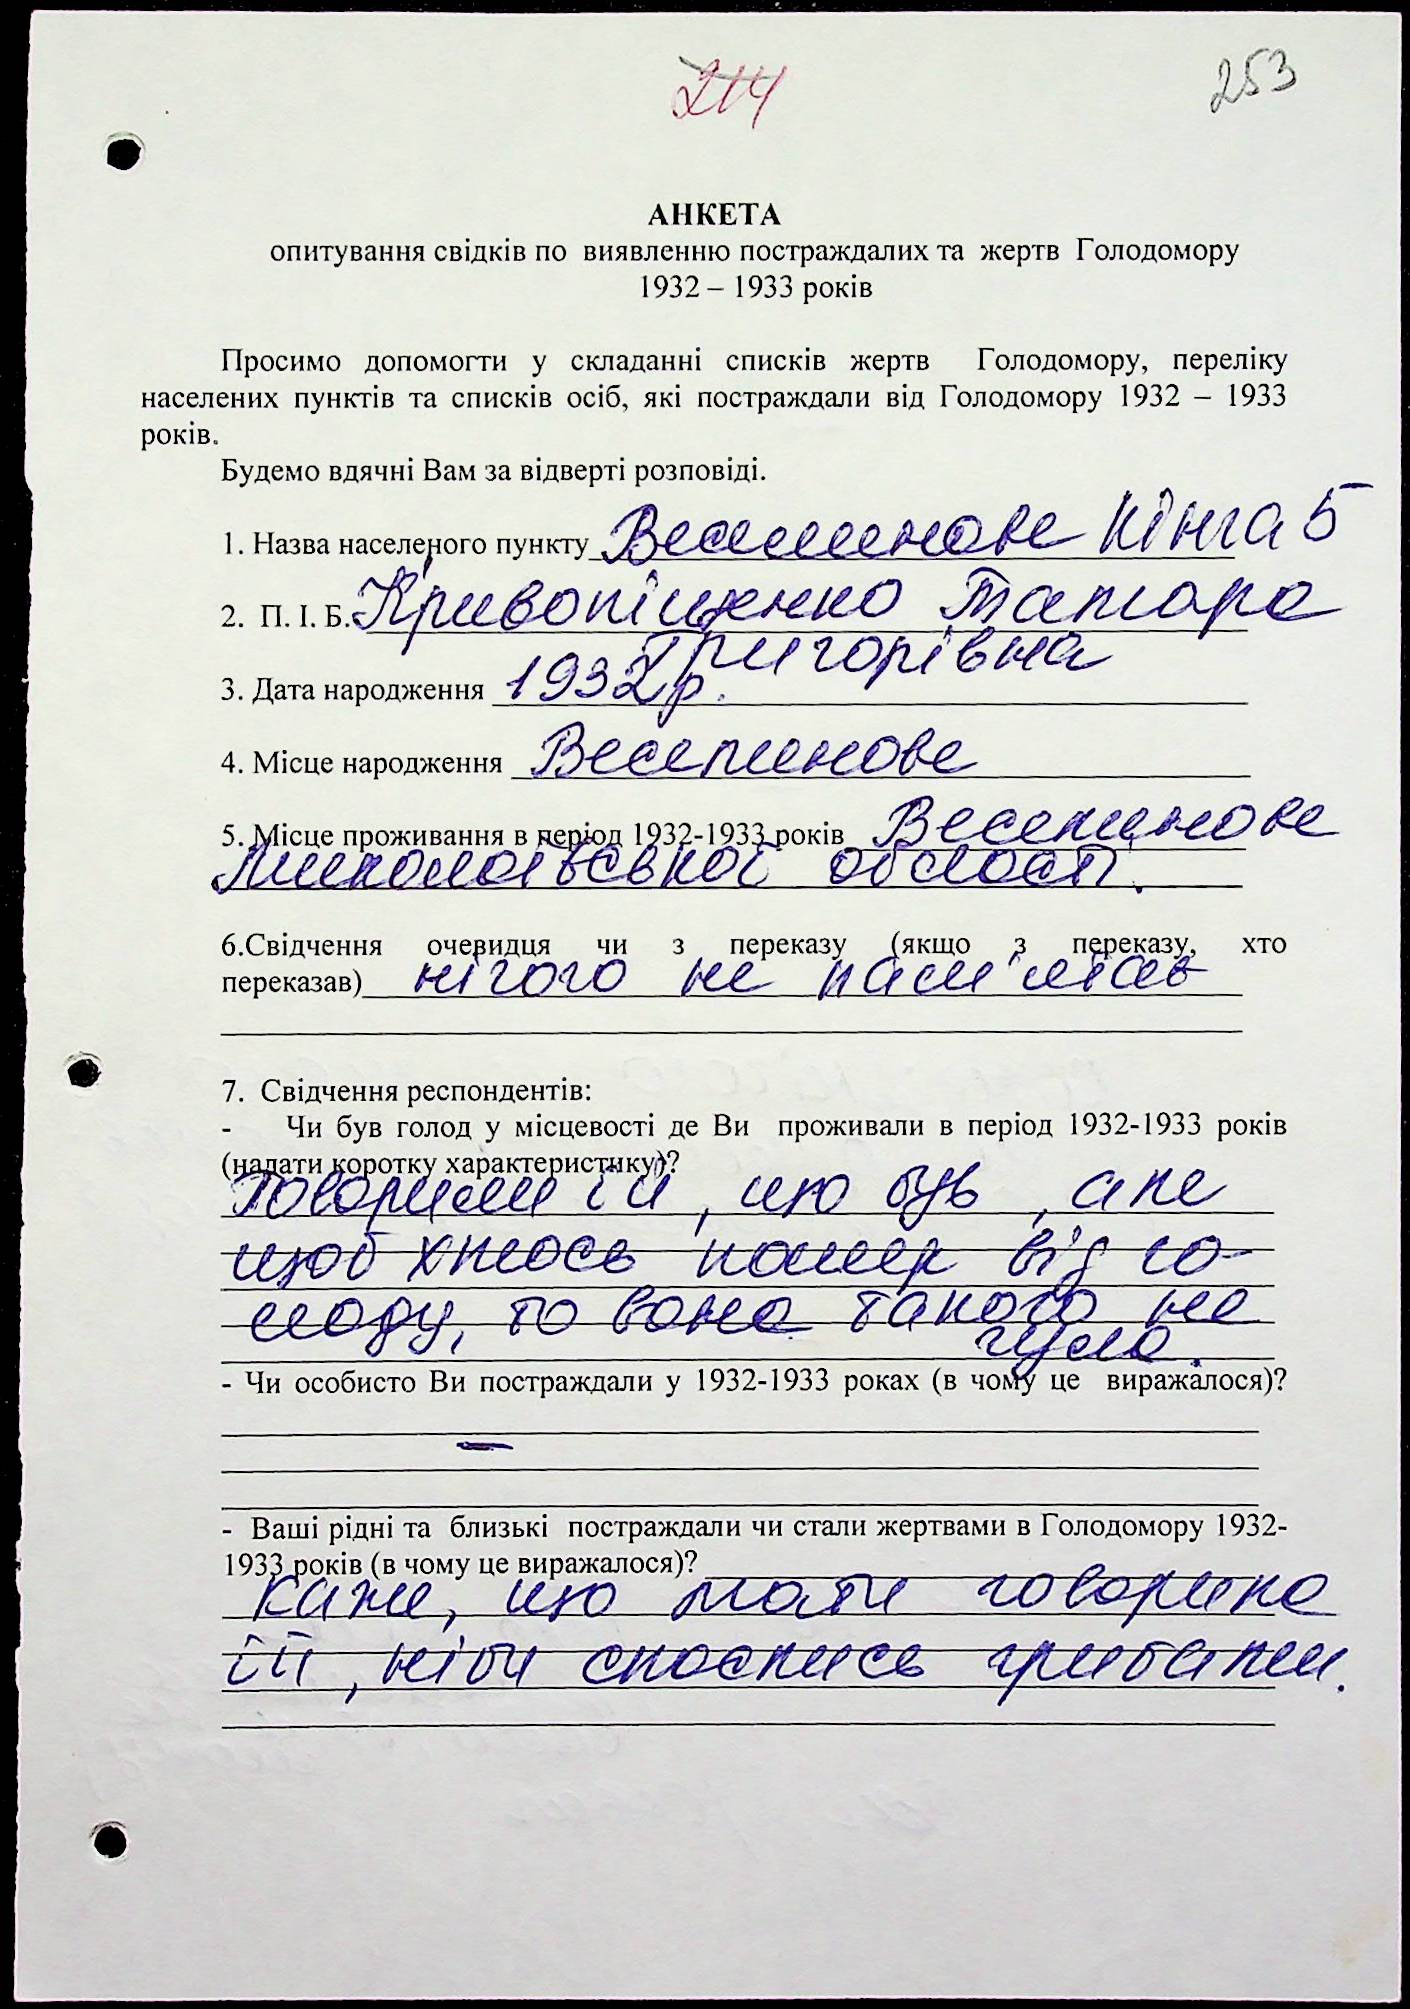 214
253
АНКЕТА
опитування свідків по виявленню постраждалих та жертв Голодомору
1932 – 1933 років
Просимо допомогти у складанні списків жертв Голодомору, переліку
населених пунктів та списків осіб, які постраждали від Голодомору 1932 – 1933
років.
Будемо вдячні Вам за відверті розповіді.
1. Назва населеного пункту Веселинове Кінга 5
2. П. І. Б. Кривопіщенко Тамара
Григорівна
3. Дата народження 1932 р.
4. Місце народження Веселинове
5. Місце проживання в період 1932-1933 років Веселинове
Миколаївської області.
6.Свідчення очевидця чи з переказу (якщо з переказу, хто
переказав) нічого не пам'ятає
7. Свідчення респондентів:
- Чи був голод у місцевості де Ви проживали в період 1932-1933 років
(надати коротку характеристику)?
Говорили їй, що був, але
щоб хтось помер від го-
лоду, то вона такого не
чула.
- Чи особисто Ви постраждали у 1932-1933 роках (в чому це виражалося)?
–
- Ваші рідні та близькі постраждали чи стали жертвами в Голодомору 1932-
1933 років (в чому це виражалося)?
каже, що мати говорила
їй, ніби спаслись грибами.